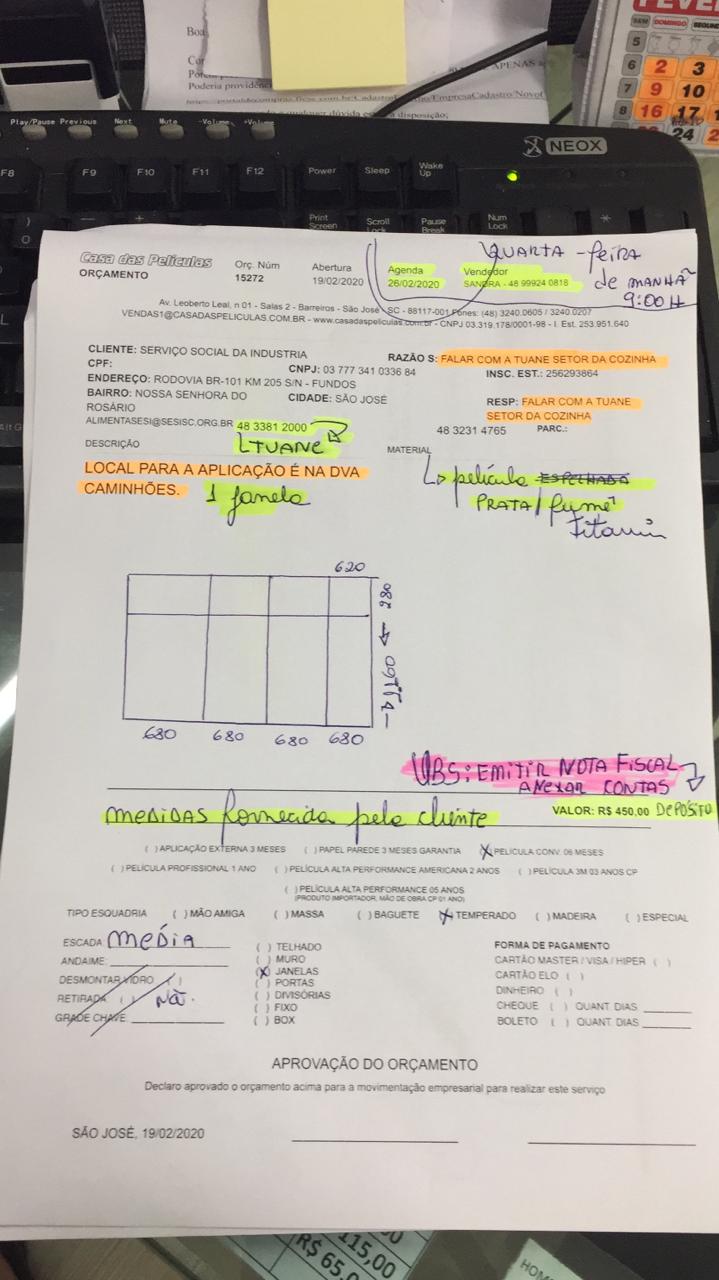 Boa
Cor
APENAS a
Poderia providênc
Play/Pause Previous Next Mute -Volume +Volume
NEOX
F8 F9 F10 F11 F12 Power Sleep Wake Up
Print Screen Scroll Lock Pause Break Num Lock
5
6 2 3
7 9 10
8 16 17
24
Casa das Películas
ORÇAMENTO
Orç. Núm
15272
Abertura
19/02/2020
Agenda
26/02/2020
Vendedor
SANDRA - 48 99924 0818
QUARTA - feira
de MANHÃ
9:00 H
Av. Leoberto Leal, n 01 - Salas 2 - Barreiros - São José - SC - 88117-001 Fones: (48) 3240.0605 / 3240.0207
VENDAS1@CASADASPELICULAS.COM.BR - www.casadaspeliculas.com.br - CNPJ 03.319.178/0001-98 - I. Est. 253.951.640
CLIENTE: SERVIÇO SOCIAL DA INDUSTRIA
RAZÃO S: FALAR COM A TUANE SETOR DA COZINHA
CPF:
CNPJ: 03 777 341 0336 84
INSC. EST.: 256293864
ENDEREÇO: RODOVIA BR-101 KM 205 S/N - FUNDOS
BAIRRO: NOSSA SENHORA DO ROSÁRIO
CIDADE: SÃO JOSÉ
RESP: FALAR COM A TUANE
SETOR DA COZINHA
ALIMENTASESI@SESISC.ORG.BR 48 3381 2000
48 3231 4765
PARC.:
TUANE
DESCRIÇÃO
MATERIAL
LOCAL PARA A APLICAÇÃO É NA DVA
CAMINHÕES.
1 janela
película ESPELHADA
PRATA / fumê
titanium
620
980
680 680 680 680
OBS: EMITIR NOTA FISCAL
ANEXAR CONTAS
MEDIDAS fornecida pelo cliente
VALOR: R$ 450,00 DEPÓSITO
( ) APLICAÇÃO EXTERNA 3 MESES ( ) PAPEL PAREDE 3 MESES GARANTIA (X) PELÍCULA CONV. 06 MESES
( ) PELÍCULA PROFISSIONAL 1 ANO ( ) PELÍCULA ALTA PERFORMANCE AMERICANA 2 ANOS ( ) PELÍCULA 3M 03 ANOS CP
( ) PELÍCULA ALTA PERFORMANCE 05 ANOS
(PRODUTO IMPORTADOR, MÃO DE OBRA CP 01 ANO)
TIPO ESQUADRIA ( ) MÃO AMIGA ( ) MASSA ( ) BAGUETE (X) TEMPERADO ( ) MADEIRA ( ) ESPECIAL
ESCADA MÉDIA
ANDAIME:
DESMONTAR VIDRO ( )
RETIRADA ( ) NÃO.
GRADE CHAVE
( ) TELHADO
( ) MURO
(X) JANELAS
( ) PORTAS
( ) DIVISÓRIAS
( ) FIXO
( ) BOX
FORMA DE PAGAMENTO
CARTÃO MASTER / VISA / HIPER ( )
CARTÃO ELO ( )
DINHEIRO ( )
CHEQUE ( ) QUANT. DIAS
BOLETO ( ) QUANT. DIAS
APROVAÇÃO DO ORÇAMENTO
Declaro aprovado o orçamento acima para a movimentação empresarial para realizar este serviço
SÃO JOSÉ, 19/02/2020
115,00
R$ 65,0
HOM